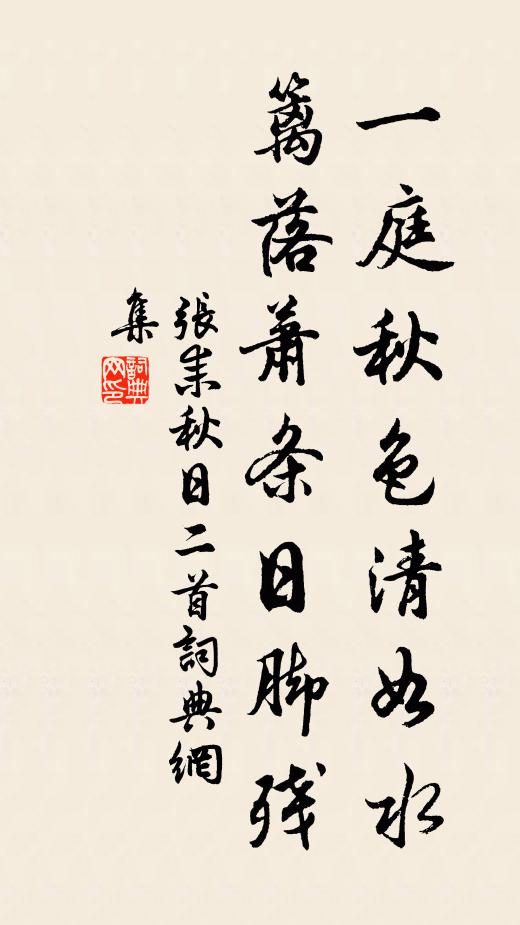 一庭秋色清如水
篱落蕭条日脚残
張耒秋日二首詞典網
集
詞典
网印